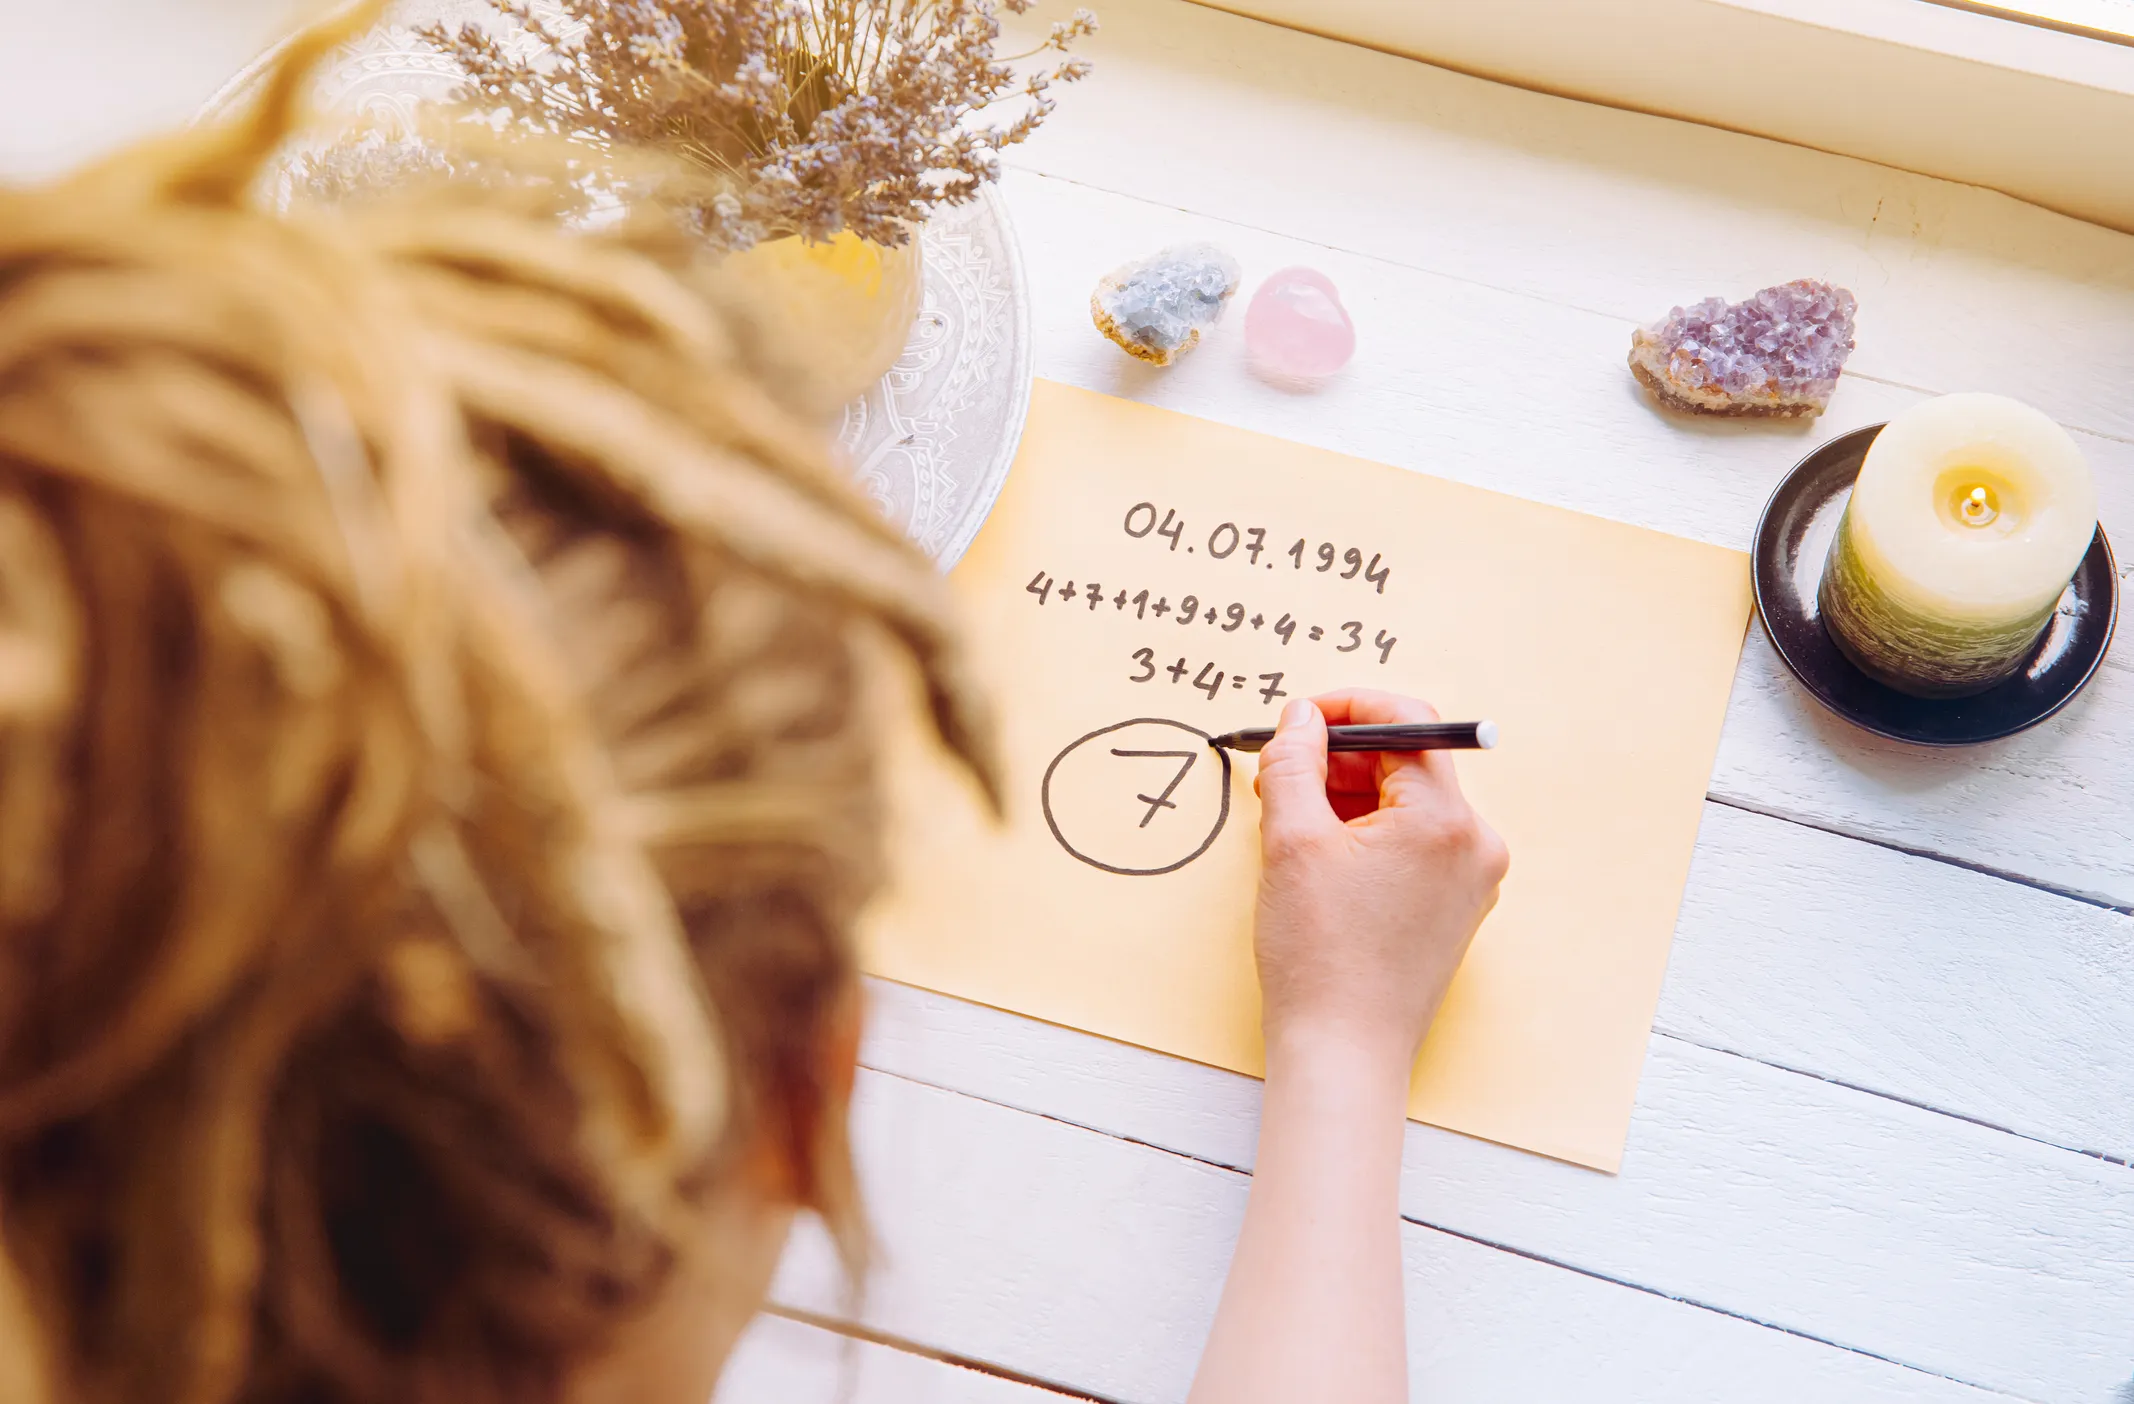 04.07.1994
4+7+1+9+9+4=34
3+4=7
7